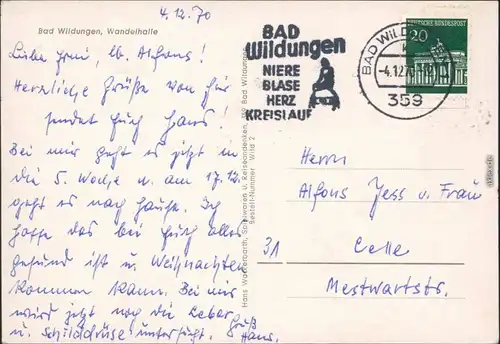 4.12.70
Bad Wildungen, Wandelhalle
Liebe Irmi, lb. Alfons!
Herzliche Grüße von hier
sendet Euch Hans!
Bei mir geht es jetzt in
die 5. Woche u. am 17.12.
geht es nach Hause. Ich
hoffe das bei Euch alles
gesund ist u. Weihnachten
kommen kann. Bei mir
wird jetzt noch die Leber
u. Schilddrüse untersucht. Gruß
Hans.
Hans Wackerbarth, Spielwaren u. Reiseandenken, 359 Bad Wildungen
Bestell-Nummer Wild 2
BAD
Wildungen
NIERE
BLASE
HERZ
KREISLAUF
BAD WILDUNGEN
-4.12.70
359
DEUTSCHE BUNDESPOST
20
Herrn
Alfons Jess u. Frau
31 Celle
Mestwartstr.